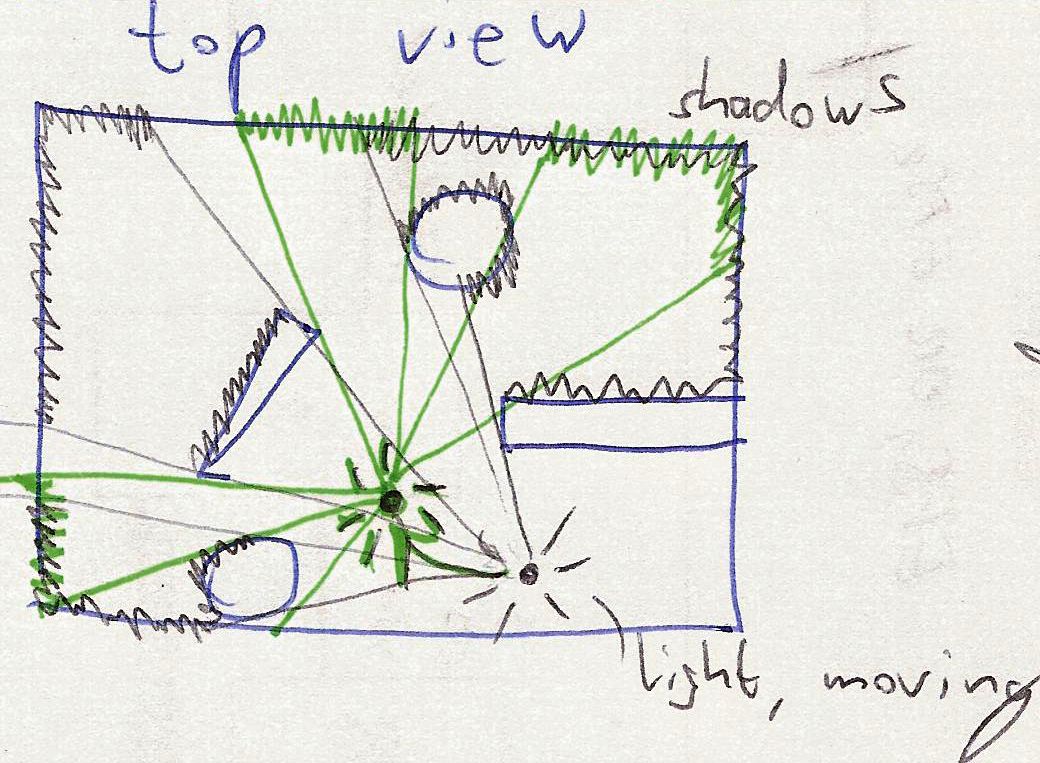 top view
shadows
light, moving